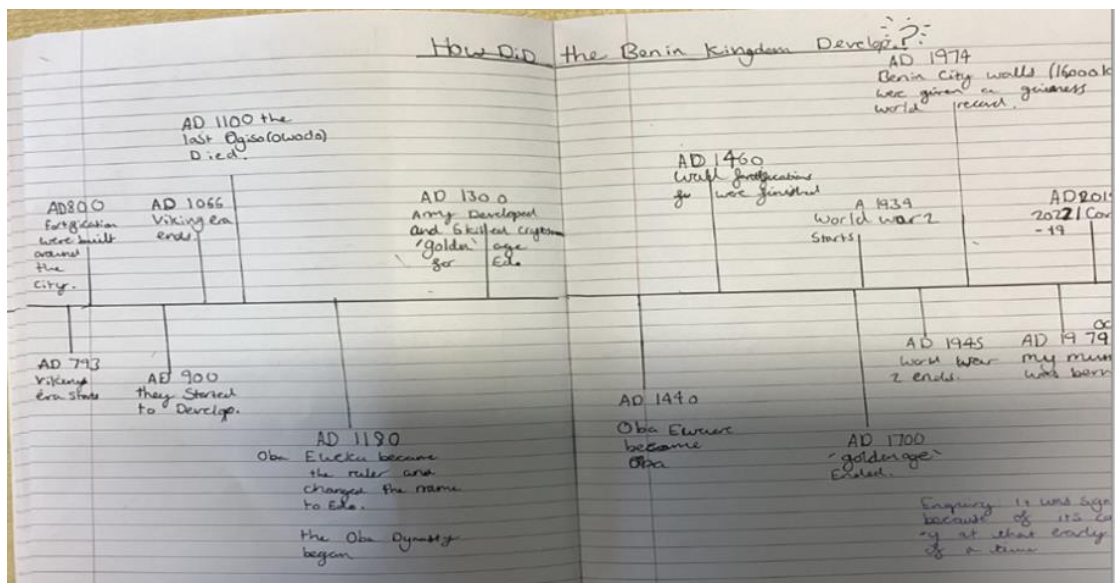 How Did the Benin Kingdom Develop?
AD 1974
Benin City walls (16000k
were given a guinness
world record.
AD 1100 the
last Ogiso (owodo)
Died.
AD 1460
wall fortifications
were finished
AD800
fortification
were built
around
the
City.
AD 1066
Viking era
ends.
AD 1300
Army Developed
and Skilled
'golden' age
for Edo.
A 1939
World war 2
Starts
AD 201
2022/ Cov
-19
AD 793
Vikings
era starts
AD 900
they Started
to Develop.
AD 1180
Oba Eweka became
the ruler and
changed the name
to Edo.
the Oba Dynasty
began
AD 1440
Oba Ewuare
became
Oba
AD 1700
'golden age'
Ended.
AD 1945
World war
2 ends.
AD 1979
my mum
was born
Enquiry: It was sign
because of its
-y at that early
of a time